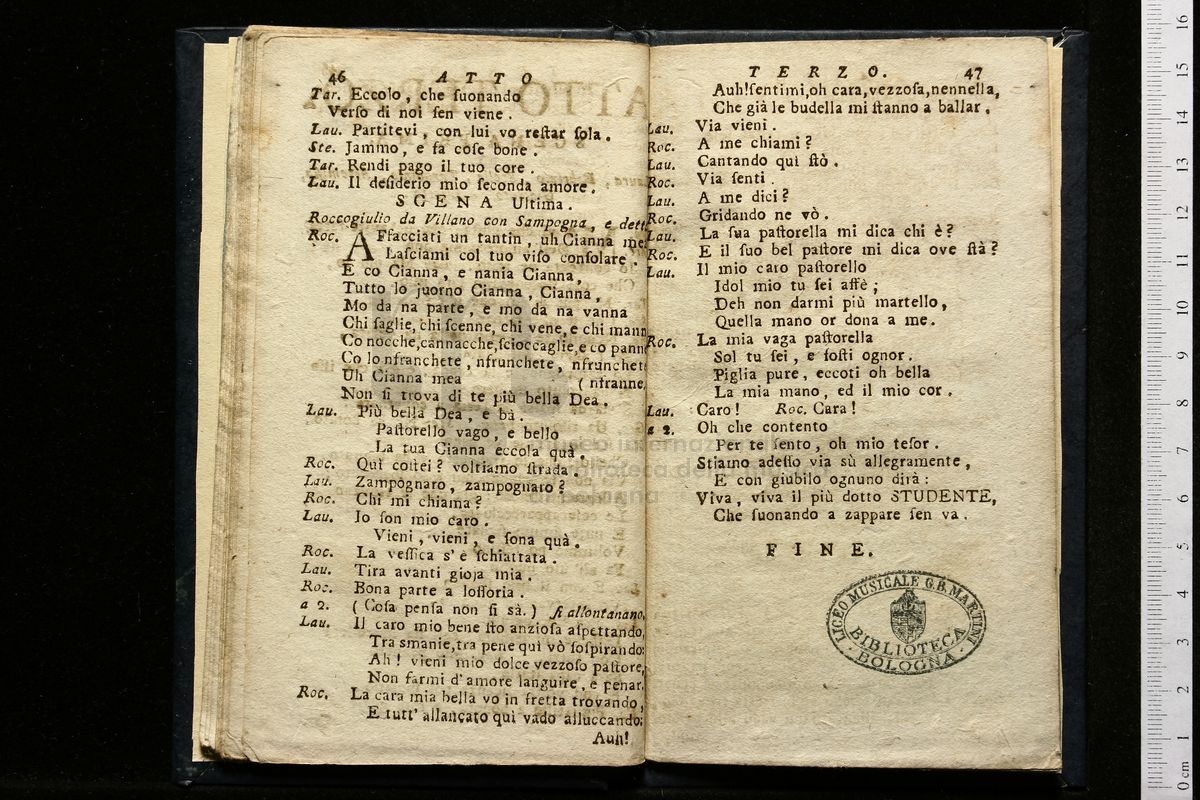 46 ATTO
Tar. Eccolo, che ſuonando
Verſo di noi ſen viene.
Lau. Partitevi, con lui vo reſtar ſola.
Ste. Jammo, e fa coſe bone.
Tar. Rendi pago il tuo core.
Lau. Il deſiderio mio ſeconda amore.
SCENA Ultima.
Roccogiulio da Villano con Sampogna, e dett
Roc. AFfacciati un tantin, uh Cianna me
Laſciami col tuo viſo conſolare.
E co Cianna, e nania Cianna,
Tutto lo juorno Cianna, Cianna,
Mo da na parte, e mo da na vanna
Chi ſaglie, chi ſcenne, chi vene, e chi mann
Co nocche, cannacche, ſcioccaglie, e co pann
Co lo nfranchete, nfrunchete, nfrunchet
Uh Cianna mea (nfranne,
Non ſi trova di te più bella Dea.
Lau. Più bella Dea, e bà.
Paſtorello vago, e bello
La tua Cianna eccola quà.
Roc. Quì coſtei? voltiamo ſtrada.
Lau. Zampognaro, zampognaro?
Roc. Chi mi chiama?
Lau. Io ſon mio caro.
Vieni, vieni, e ſona quà.
Roc. La veſſica s'è ſchiattata.
Lau. Tira avanti gioja mia.
Roc. Bona parte a loſſoria.
a 2. (Coſa penſa non ſi sà.) ſi allontanano.
Lau. Il caro mio bene ſto anzioſa aſpettando,
Tra smanie, tra pene quì vò ſoſpirando:
Ah! vieni mio dolce vezzoſo paſtore,
Non farmi d'amore languire, e penar.
Roc. La cara mia bella vo in fretta trovando,
E tutt' allancato quì vado alluccando:
Auh!
TERZO. 47
Auh! ſentimi, oh cara, vezzoſa, nennella,
Che già le budella mi ſtanno a ballar.
Lau. Via vieni.
Roc. A me chiami?
Lau. Cantando quì ſtò.
Roc. Via ſenti.
Lau. A me dici?
Roc. Gridando ne vò.
Lau. La ſua paſtorella mi dica chi è?
Roc. E il ſuo bel paſtore mi dica ove ſtà?
Lau. Il mio caro paſtorello
Idol mio tu ſei affè;
Deh non darmi più martello,
Quella mano or dona a me.
Roc. La mia vaga paſtorella
Sol tu ſei, e foſti ognor.
Piglia pure, eccoti oh bella
La mia mano, ed il mio cor.
Lau. Caro! Roc. Cara!
a 2. Oh che contento
Per te ſento, oh mio teſor.
Stiamo adeſſo via sù allegramente,
E con giubilo ognuno dirà:
Viva, viva il più dotto STUDENTE,
Che ſuonando a zappare ſen va.
FINE.
LICEO MUSICALE G.B. MARTINI
BIBLIOTECA
BOLOGNA